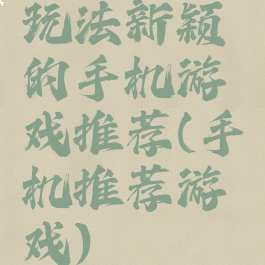 玩法新颖
的手机游
戏推荐(手
机推荐游
戏)